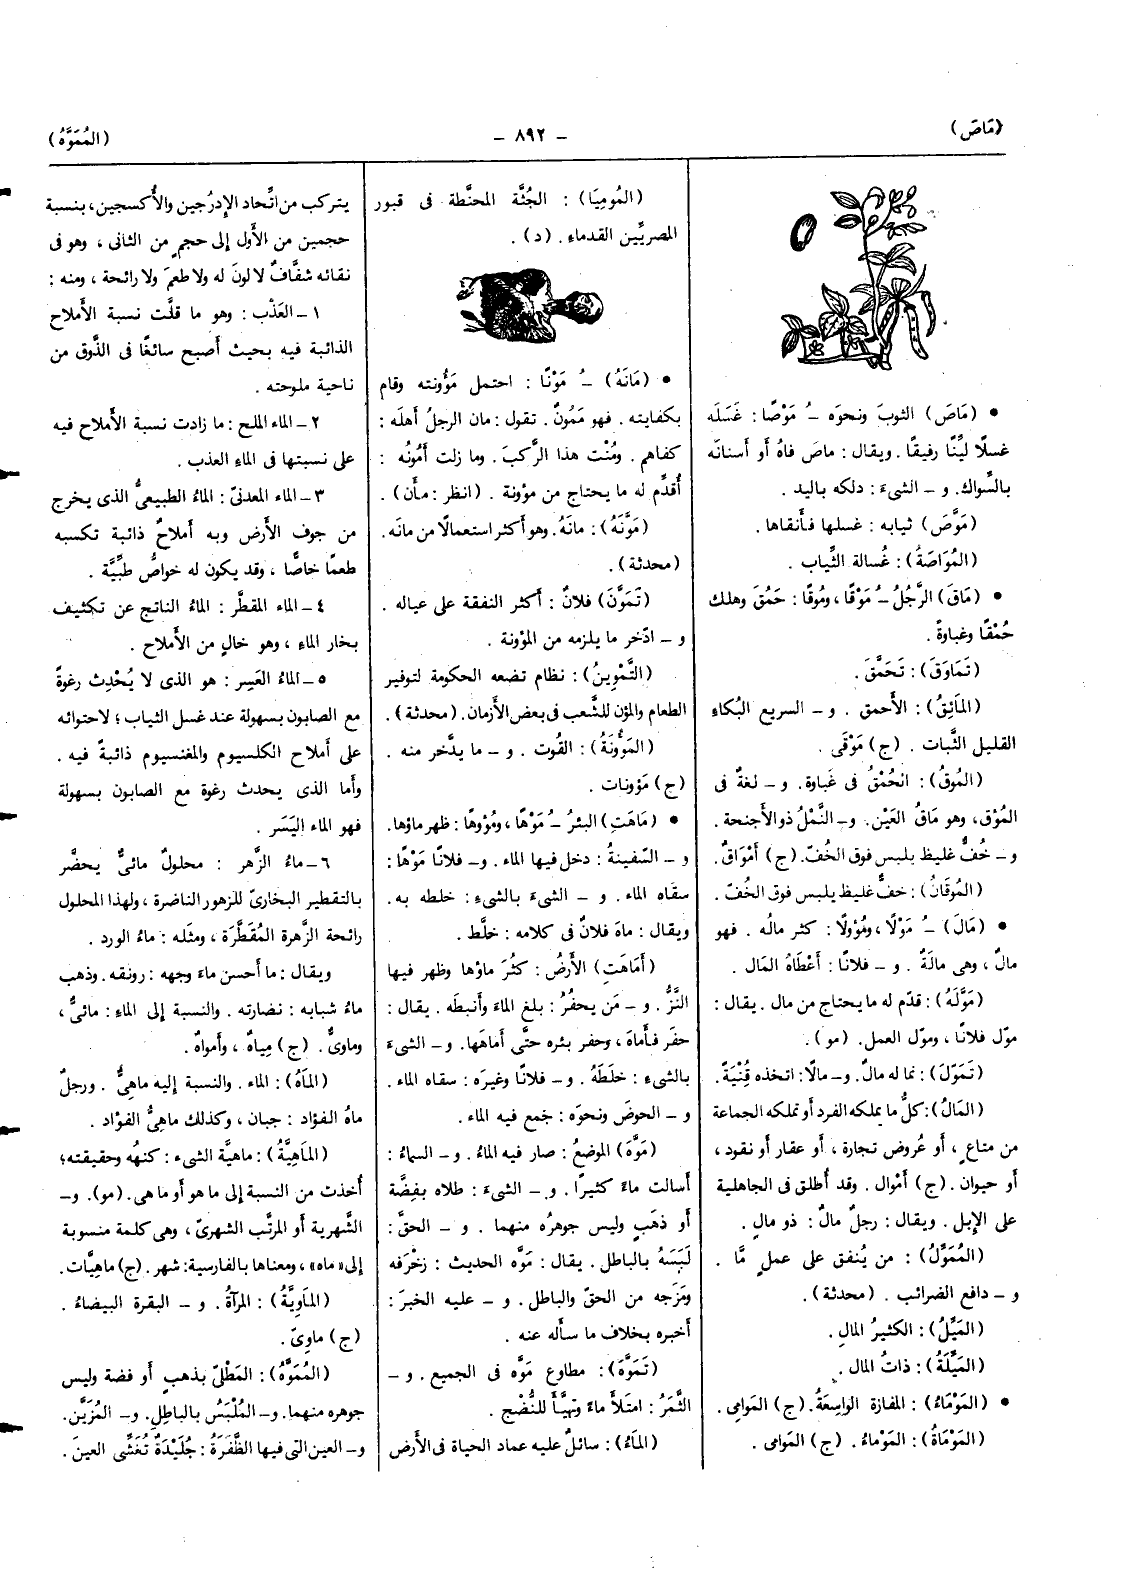 (مَاصَ)
– ٨٩٢ –
(المُمَوَّهُ)
• (مَاصَ) الثوبَ ونحوَه ـُ مَوْصًا: غَسَلَه
غسلًا ليِّنًا رفيقًا. ويقال: ماصَ فاهُ أو أسنانَه
بالسِّواك. و – الشىءَ: دلكه باليد.
(مَوَّصَ) ثيابه: غسلها فأنقاها.
(المُوَاصَةُ): غُسالة الثِّياب.
• (مَاقَ) الرَّجُلُ ـُ مَوْقًا، ومُوقًا: حَمُقَ وهلك
حُمْقًا وغباوةً.
(تَمَاوَقَ): تَحَمَّقَ.
(المَائِقُ): الأحمق. و – السريع البُكاءِ
القليل الثَّبات. (ج) مَوْقَى.
(المُوقُ): الحُمْقُ فى غَباوة. و – لغةٌ فى
المُؤْق، وهو مَاقُ العَيْن. و – النَّمْلُ ذو الأجنحة.
و – خُفٌّ غليظ يلبس فوق الخُفّ. (ج) أَمْوَاقٌ.
(المُوقَانُ): خفٌّ غليظ يلبس فوق الخُفّ.
• (مَالَ) ـُ مَوْلًا، ومُؤُولًا: كثر مالُه. فهو
مالٌ، وهى مالَةٌ. و – فلانًا: أَعْطَاهُ المَال.
(مَوَّلَهُ): قدّم له ما يحتاج من مال. يقال:
موّل فلانًا، وموّل العمل. (مو).
(تَمَوَّلَ): نما له مالٌ. و – مالًا: اتخذه قِنْيَةً.
(المَالُ): كلُّ ما يملكه الفرد أو تملكه الجماعة
من متاعٍ، أو عُروض تجارة، أو عقار أو نقود،
أو حيوان. (ج) أَمْوال. وقد أُطلق فى الجاهلية
على الإبل. ويقال: رجلٌ مالٌ: ذو مالٍ.
(المُمَوِّلُ): من يُنفق على عملٍ مَّا.
و – دافع الضرائب. (محدثة).
(المَيِّلُ): الكثيرُ المالِ.
(المَيِّلَةُ): ذاتُ المال.
• (المَوْمَاءُ): المفازة الواسِعَةُ. (ج) المَوامِى.
(المَوْمَاةُ): المَوْماءُ. (ج) المَوامى.
(المُومِيَا): الجُثَّة المحنَّطة فى قبور
المصريِّين القدماء. (د).
• (مَانَهُ) ـُ مَوْنًا: احتمل مَؤُونته وقام
بكفايته. فهو مَمُونٌ. تقول: مان الرجلُ أهلَه:
كفاهم. ومُنْت هذا الرَّكبَ. وما زلت أَمُونُه:
أُقدِّم له ما يحتاج من مؤونة. (انظر: مأن).
(مَوَّنَهُ): مانَهُ. وهو أكثر استعمالًا من مانَه.
(محدثة).
(تَمَوَّنَ) فلانٌ: أكثر النفقة على عياله.
و – ادّخر ما يلزمه من المؤونة.
(التَّمْوِينُ): نظام تضعه الحكومة لتوفير
الطعام والمؤن للشَّعب فى بعض الأزمان. (محدثة).
(المَؤُونَةُ): القُوت. و – ما يدَّخر منه.
(ج) مَؤونات.
• (مَاهَتِ) البئرُ ـُ مَوْهًا، ومُؤُوهًا: ظهر ماؤها.
و – السّفينةُ: دخل فيها الماء. و – فلانًا مَوْهًا:
سقَاه الماء. و – الشىءَ بالشىءِ: خلطه به.
ويقال: ماهَ فلانٌ فى كلامه: خلَّط.
(أَمَاهَتِ) الأَرضُ: كثُرَ ماؤها وظهر فيها
النَّزُّ. و – مَن يحفُرُ: بلغ الماءَ وأنبطَه. يقال:
حفَر فأَماهَ، وحفر بئره حتَّى أماهَها. و – الشىءَ
بالشىءِ: خلَطَهُ. و – فلانًا وغيرَه: سقاه الماء.
و – الحوضَ ونحوَه: جمع فيه الماء.
(مَوَّهَ) الموضعُ: صار فيه الماءُ. و – السماءُ:
أسالت ماءً كثيرًا. و – الشىءَ: طلاه بفِضَّة
أو ذهَبٍ وليس جوهرُه منهما. و – الحقَّ:
لَبَسَهُ بالباطل. يقال: مَوَّه الحديث: زخْرَفه
ومَزَجه من الحقّ والباطل. و – عليه الخبرَ:
أخبره بخلاف ما سأَله عنه.
(تَمَوَّهَ): مطاوع مَوَّه فى الجميع. و –
الثَّمَرُ: امتَلأَ ماءً وتهيَّأَ للنُّضْج.
(المَاءُ): سائلٌ عليه عماد الحياة فى الأَرض
يتركب من اتِّحاد الإدرُجين والأُكسجين، بنسبة
حجمين من الأَول إلى حجمٍ من الثانى، وهو فى
نقائه شفَّافٌ لا لونَ له ولا طعمَ ولا رائحة، ومنه:
١ – العَذْب: وهو ما قلَّت نسبة الأَملاح
الذائبة فيه بحيث أَصبح سائغًا فى الذَّوق من
ناحية ملوحته.
٢ – الماء الملح: ما زادت نسبة الأَملاح فيه
على نسبتها فى الماءِ العذب.
٣ – الماء المعدنىّ: الماءُ الطبيعىُّ الذى يخرج
من جوف الأَرض وبه أَملاحٌ ذائبة تكسبه
طعمًا خاصًّا، وقد يكون له خواصُّ طبِّيَّة.
٤ – الماء المقطَّر: الماءُ الناتج عن تكثيف
بخار الماءِ، وهو خالٍ من الأَملاح.
٥ – الماءُ العَسِر: هو الذى لا يُحْدِث رغوةً
مع الصابون بسهولة عند غسل الثياب؛ لاحتوائه
على أملاح الكلسيوم والمغنسيوم ذائبةً فيه.
وأما الذى يحدث رغوة مع الصابون بسهولة
فهو الماء اليَسَر.
٦ – ماءُ الزَّهر: محلولٌ مائىٌّ يحضَّر
بالتقطير البخارىّ للزهور الناضرة، ولهذا المحلول
رائحة الزَّهرة المُقطَّرَة، ومثله: ماءُ الورد.
ويقال: ما أحسن ماءَ وجهه: رونقه. وذهب
ماءُ شبابه: نضارته. والنسبة إلى الماءِ: مائىٌّ،
وماوىٌّ. (ج) مِياهٌ، وأمواهٌ.
(المَاهُ): الماء. والنسبة إليه ماهِىٌّ. ورجلٌ
ماهُ الفؤاد: جبان، وكذلك ماهِىُّ الفؤاد.
(المَاهِيَّةُ): ماهيَّة الشىء: كنهُه وحقيقته؛
أُخذت من النسبة إلى ما هو أو ما هى. (مو). و –
الشَّهرية أو المرتَّب الشهرىّ، وهى كلمة منسوبة
إلى «ماه»، ومعناها بالفارسية: شهر. (ج) ماهِيَّات.
(المَاوِيَّةُ): المرآةُ. و – البقرة البيضاءُ.
(ج) ماوِىّ.
(المُمَوَّهُ): المَطْلىّ بذهبٍ أو فضة وليس
جوهره منهما. و – المُلْبَسُ بالباطِلِ. و – المُزَيَّن.
و – العين التى فيها الظَّفَرَةُ: جُلَيْدَةٌ تُغَشِّى العينَ.